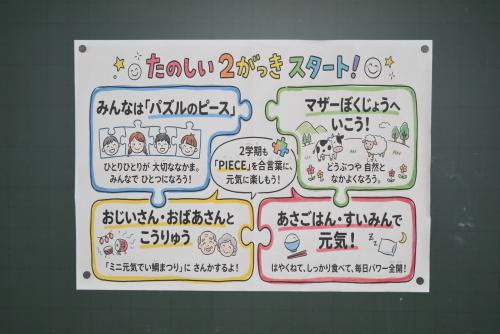 たのしい 2がっき スタート!
みんなは「パズルのピース」
ひとりひとりが 大切ななかま。
みんなで ひとつになろう!
マザーぼくじょうへ
いこう!
どうぶつや 自然と
なかよくなろう。
2学期も
「PIECE」を合言葉に、
元気に楽しもう!
おじいさん・おばあさんと
こうりゅう
「ミニ元気でい鯛まつり」に さんかするよ!
あさごはん・すいみんで
元気!
はやくねて、しっかり食べて、毎日パワー全開!